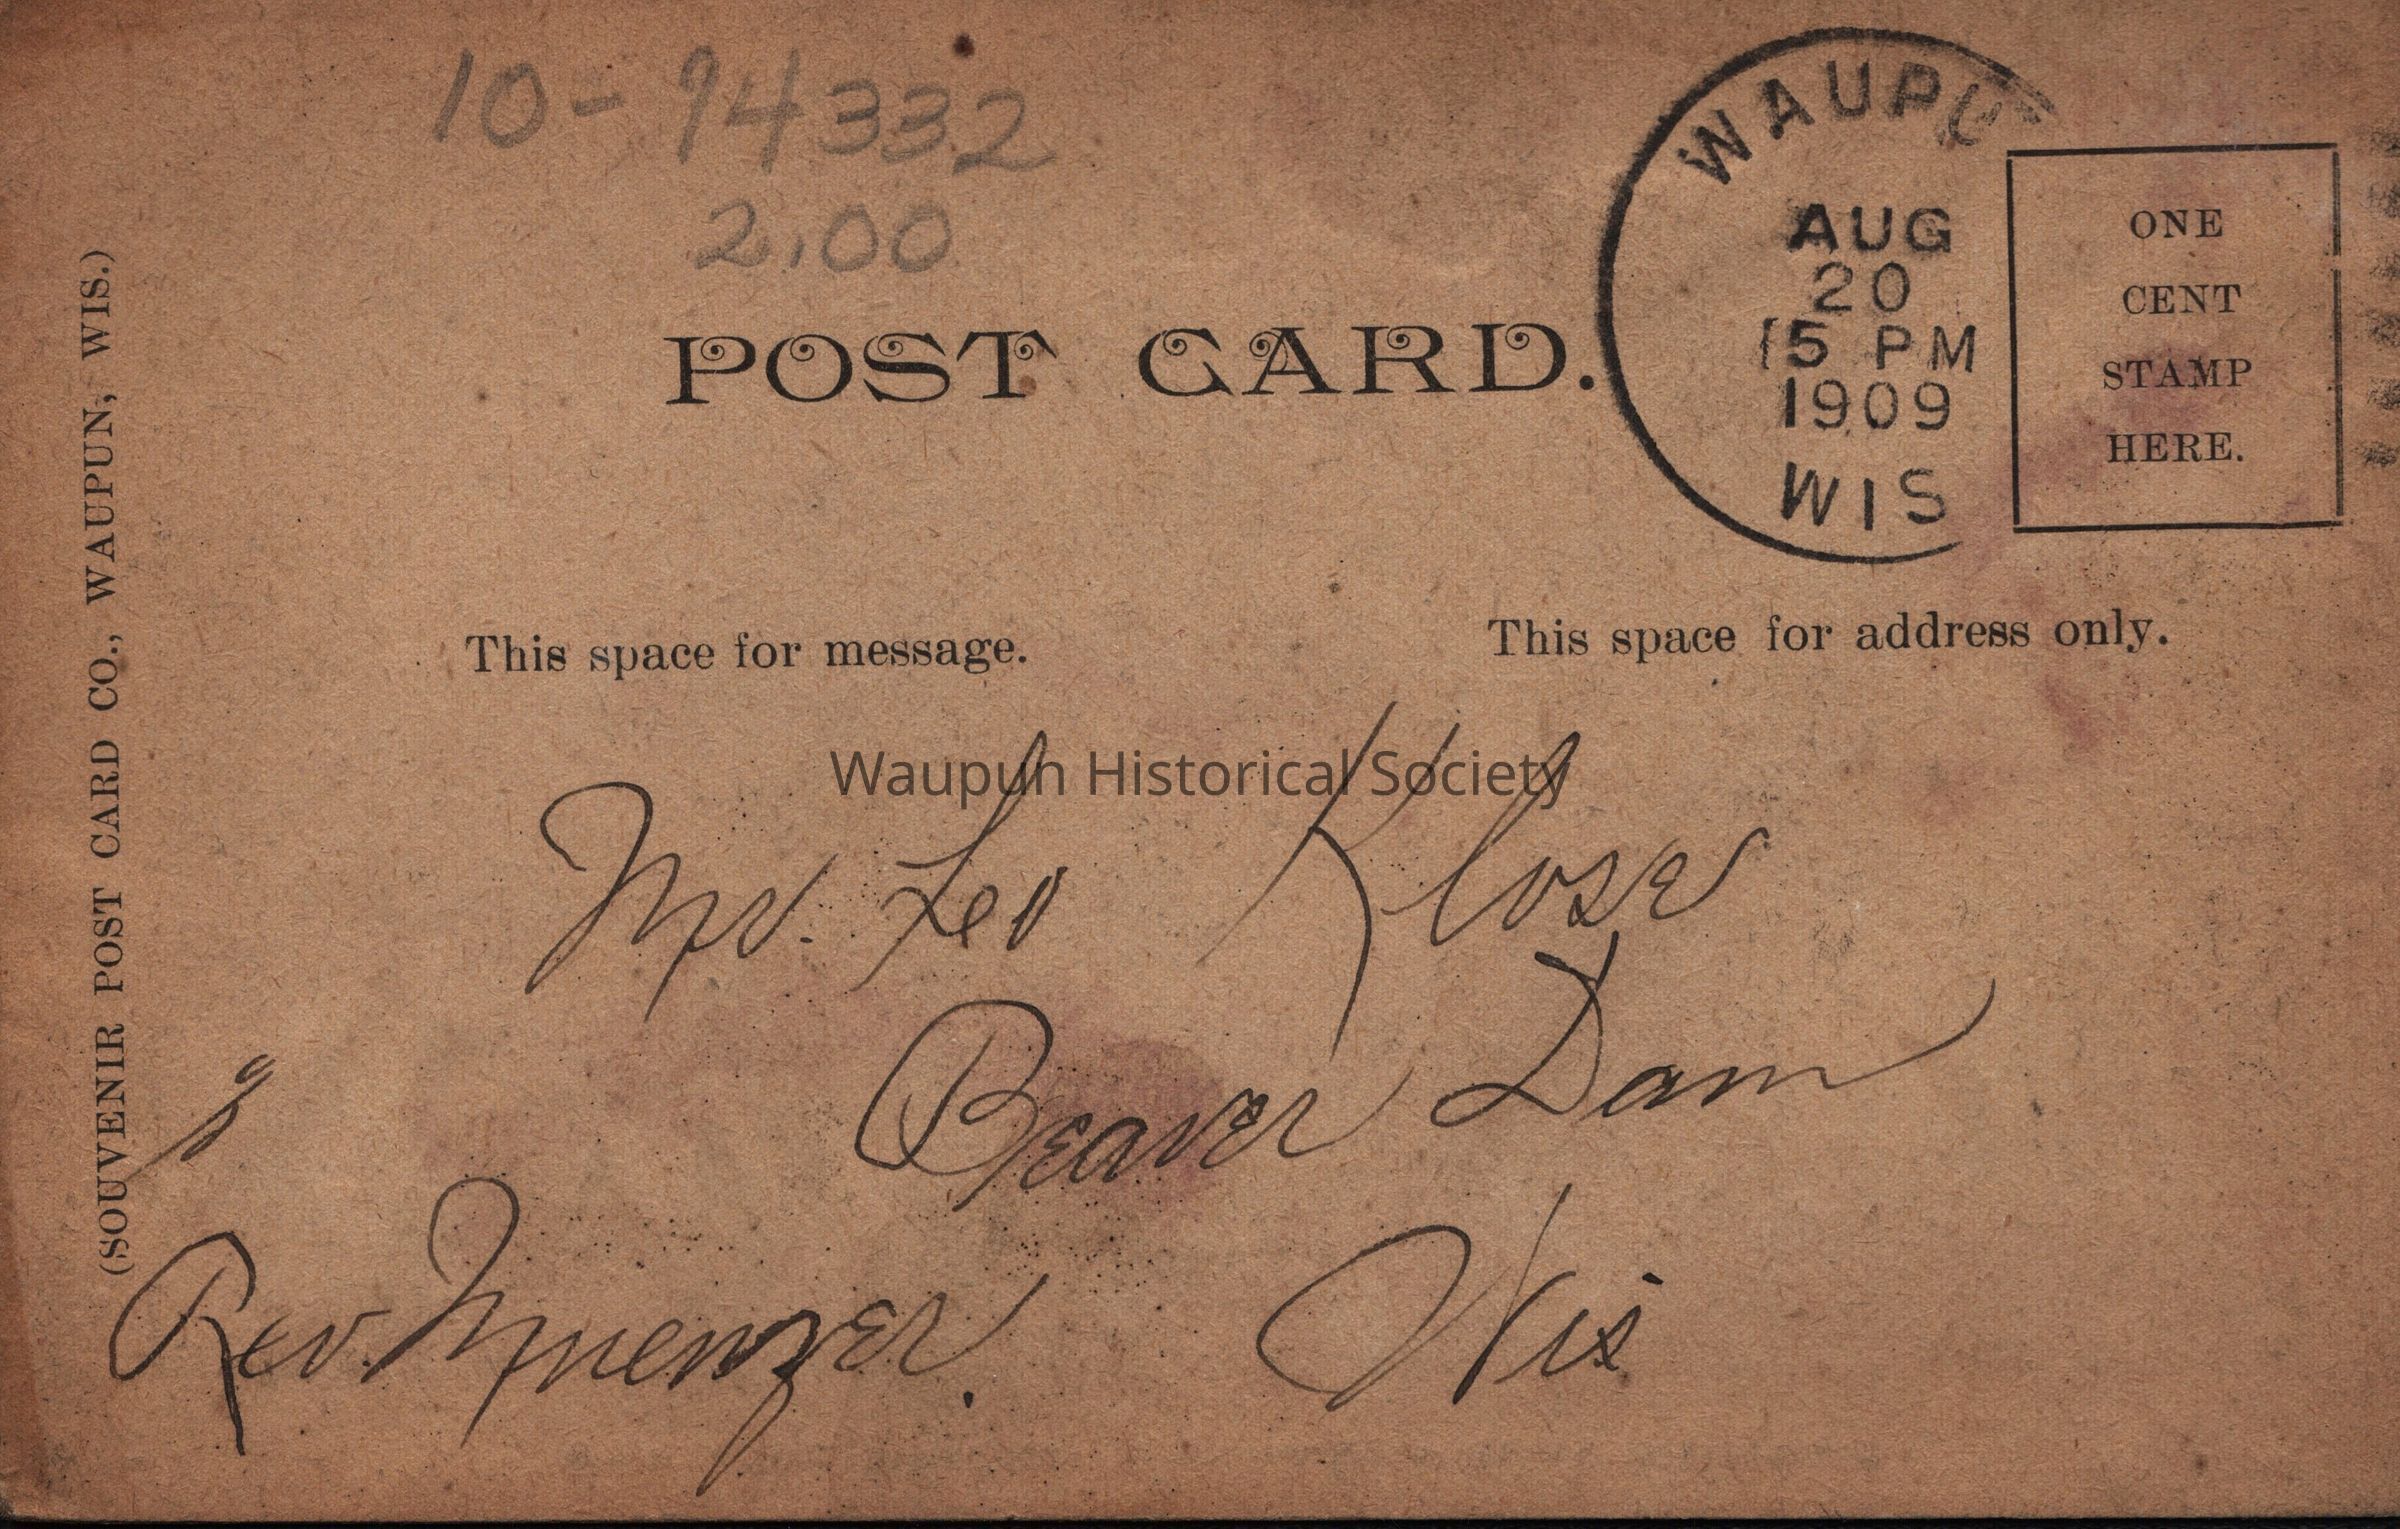 10-94332
2.00
WAUPU
AUG
20
5 PM
1909
WIS
ONE
CENT
STAMP
HERE.
POST CARD.
(SOUVENIR POST CARD CO., WAUPUN, WIS.)
This space for message.
This space for address only.
Waupun Historical Society
Mr. Leo Kloser
Beaver Dam
Wis
Rev. Muenzer.